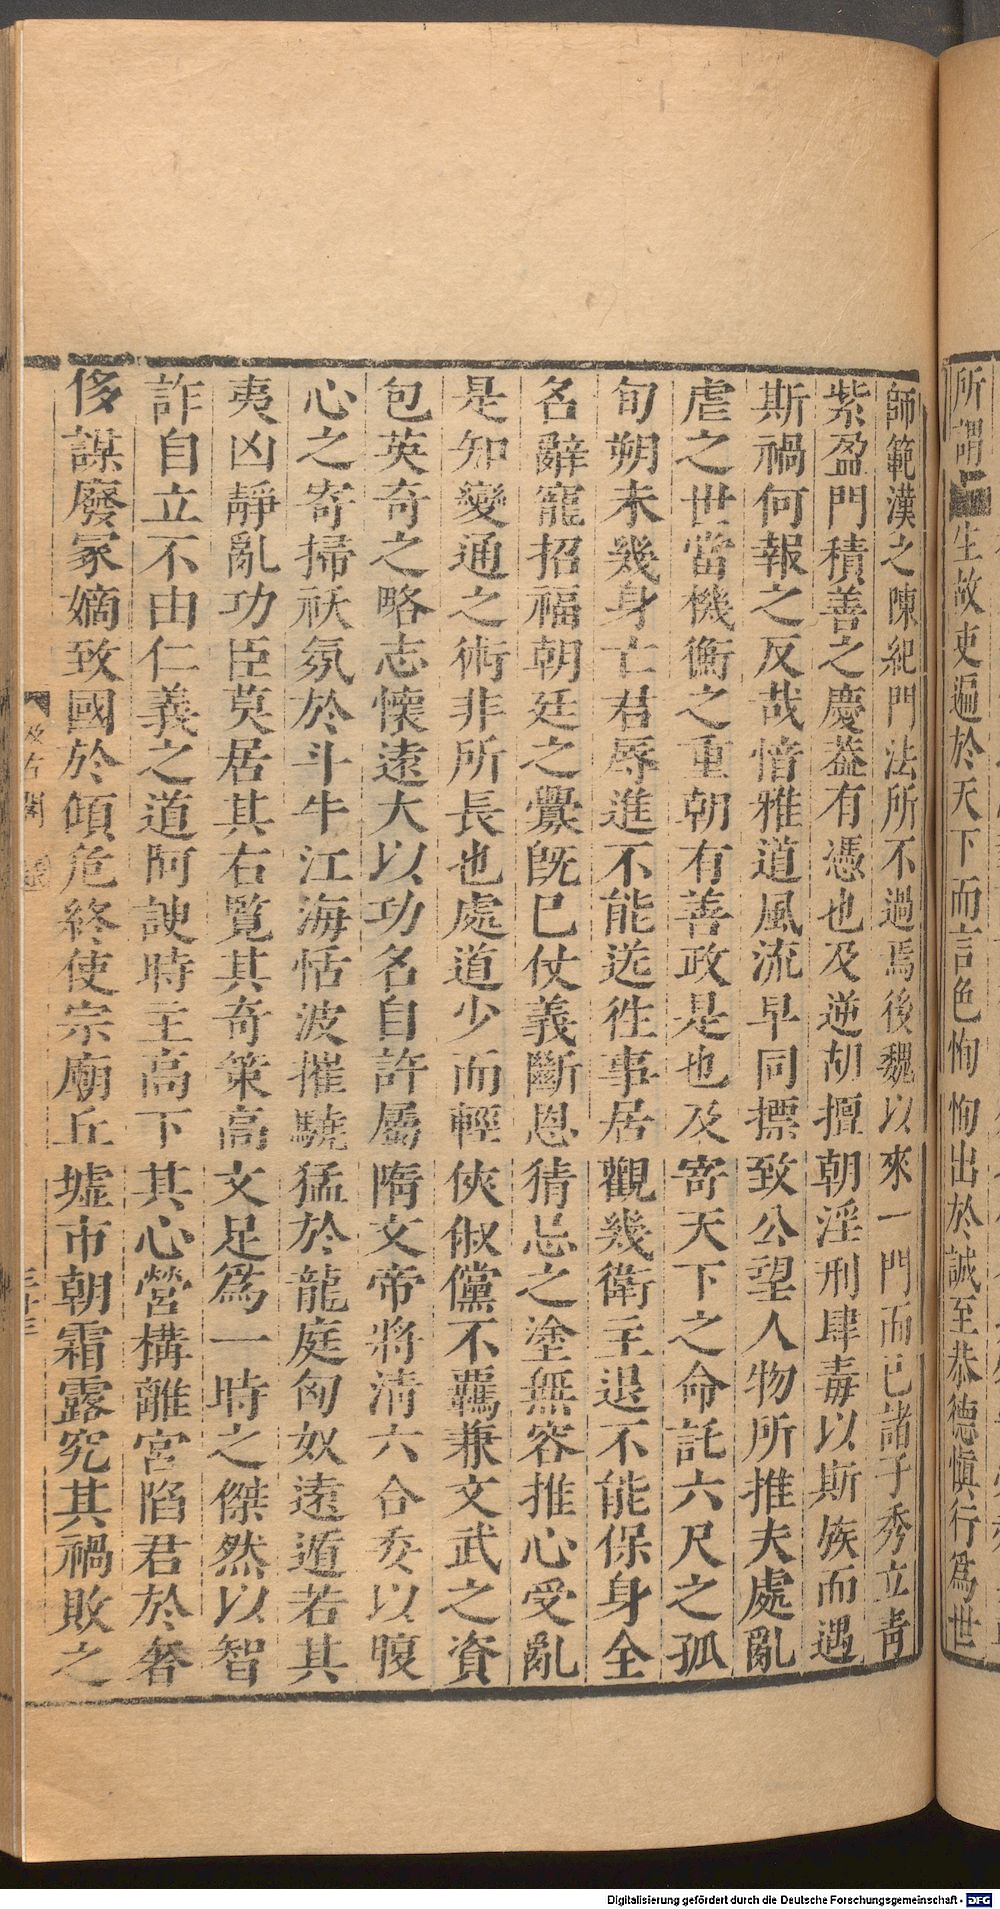 所謂生故吏遍於天下而言色恂恂出於誠至恭德愼行爲世
師範漢之陳紀門法所不過焉後魏以來一門而已諸子秀立靑
紫盈門積善之慶葢有憑也及逆胡擅朝淫刑肆毒以斯族而遇
斯禍何報之反哉愔雅道風流早同標致公望人物所推夫處亂
虐之世當機衡之重朝有善政是也及寄天下之命託六尺之孤
旬朔未幾身亡君辱進不能送徃事居觀幾衛主退不能保身全
名辭寵招福朝廷之釁旣已仗義斷恩猜忌之塗無容推心受亂
是知變通之術非所長也處道少而輕俠俶儻不羈兼文武之資
包英奇之略志懷遠大以功名自許屬隋文帝將淸六合委以腹
心之寄掃祅氛於斗牛江海恬波摧驍猛於龍庭匈奴遠遁若其
夷凶靜亂功臣莫居其右覽其奇策高文足爲一時之傑然以智
詐自立不由仁義之道阿諛時主高下其心營構離宮陷君於奢
侈謀廢冢嫡致國於傾危終使宗廟丘墟市朝霜露究其禍敗之
汲古閣
三十三
Digitalisierung gefördert durch die Deutsche Forschungsgemeinschaft - DFG